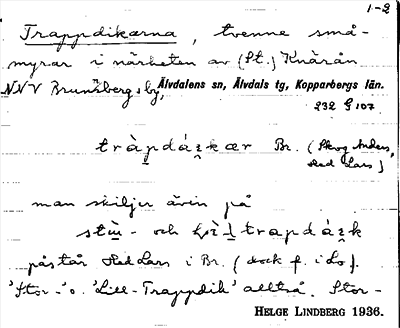 1-2
Trappdikarna, tvenne små-
myrar i närheten av (St.) Knärån
NNV Brunnbergsby, Älvdalens sn, Älvdals tg, Kopparbergs län.
232 G 107
Br. (Skog Anders,
Red Lars)
man skiljer även på
och
påstår Red Lars i Br. (dock f. i Lo).
'Stor-' o. 'Lill-Trappdik' alltså. Stor-
HELGE LINDBERG 1936.